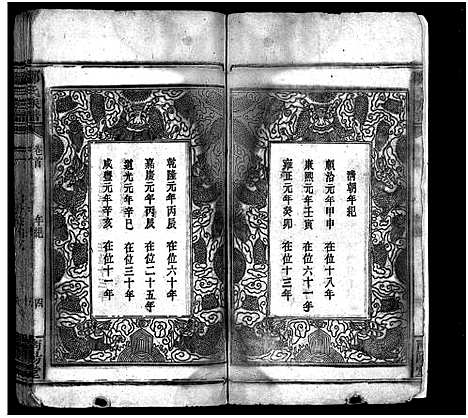 清朝年紀
順治元年甲申 在位十八年
康熙元年壬寅 在位六十一年
雍正元年癸卯 在位十三年
乾隆元年丙辰 在位六十年
嘉慶元年丙辰 在位二十五年
道光元年辛巳 在位三十年
咸豐元年辛亥 在位十一年
氏族譜
卷首
年紀
四